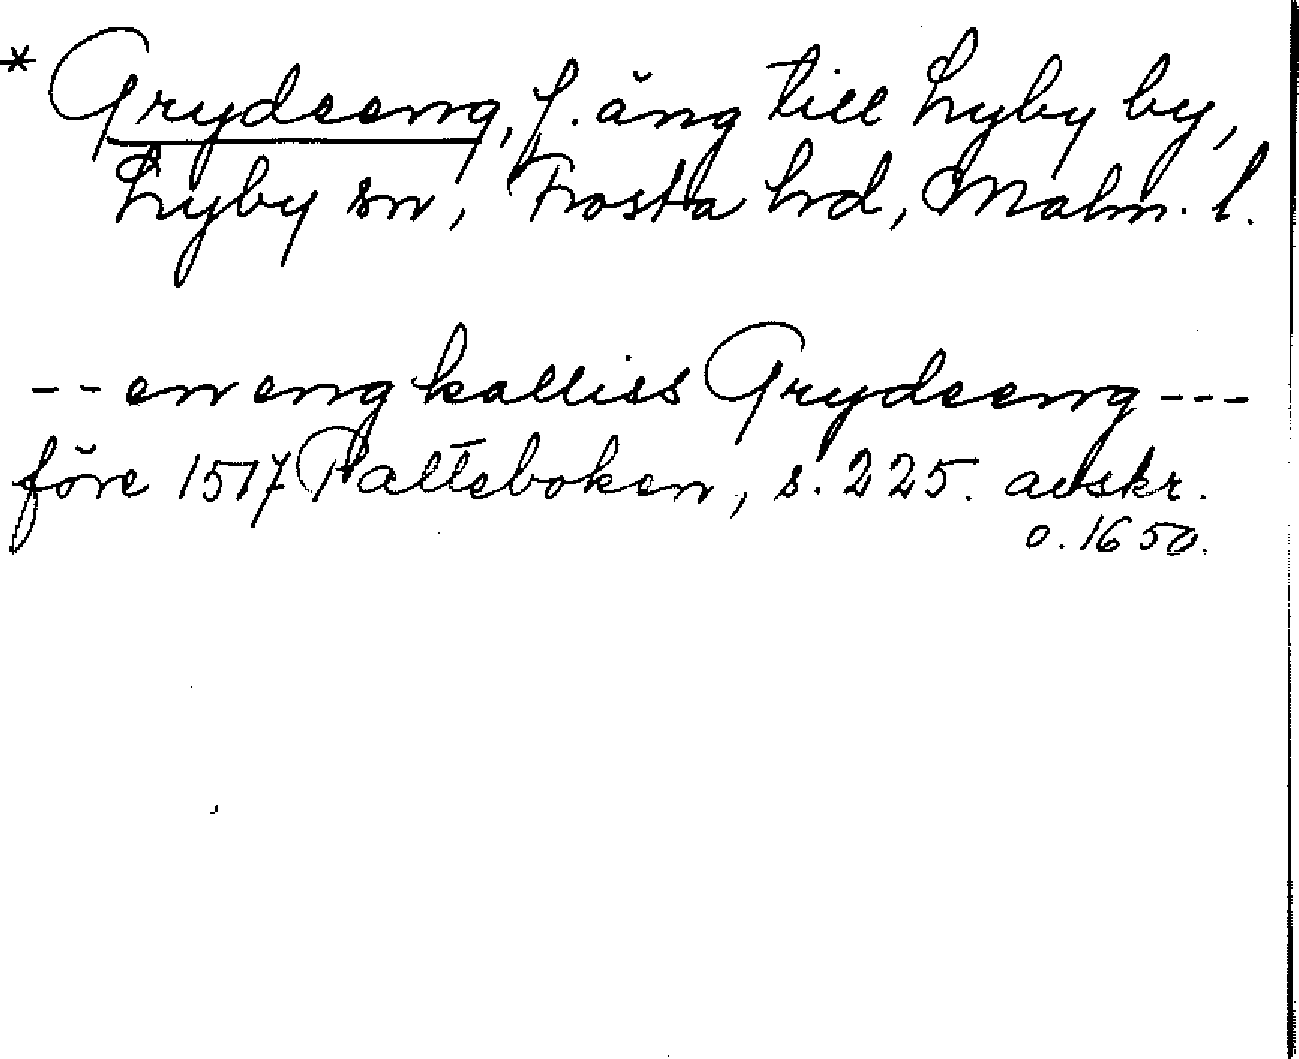 * Grydseeng, f. äng till Lyby by,
Lyby sn, Frosta hd, Malm. l.
-- en eng kalliss Grydseeng ---
före 1517 Palteboken, s. 225. avskr.
o. 1650.